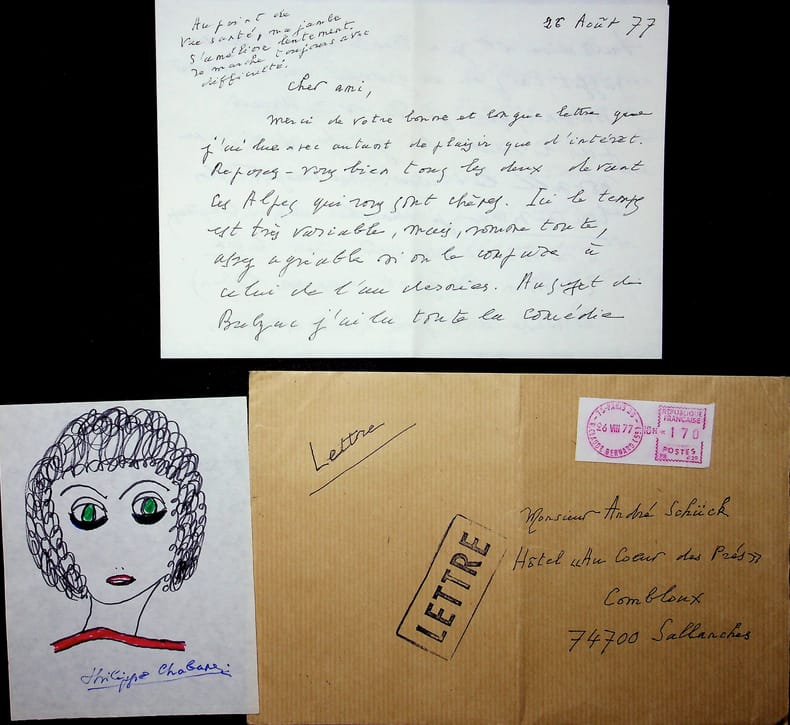 Au point de
vue santé, ma jambe
s'améliore lentement.
Je marche toujours avec
difficulté.
26 Août 77
Cher ami,
Merci de votre bonne et longue lettre que
j'ai lue avec autant de plaisir que d'intérêt.
Reposez-vous bien tous les deux devant
ces Alpes qui vous sont chères. Ici le temps
est très variable, mais, somme toute,
assez agréable si on le compare à
celui de l'an dernier. Au sujet de
Balzac j'ai lu toute la Comédie
Lettre
75-PARIS-
26 VIII 77
R. CLAUDE BERNARD (5E)
REPUBLIQUE
FRANCAISE
170
POSTES
LETTRE
Monsieur André Schück
Hôtel "Au Coeur des Prés"
Combloux
74700 Sallanches
Philippe